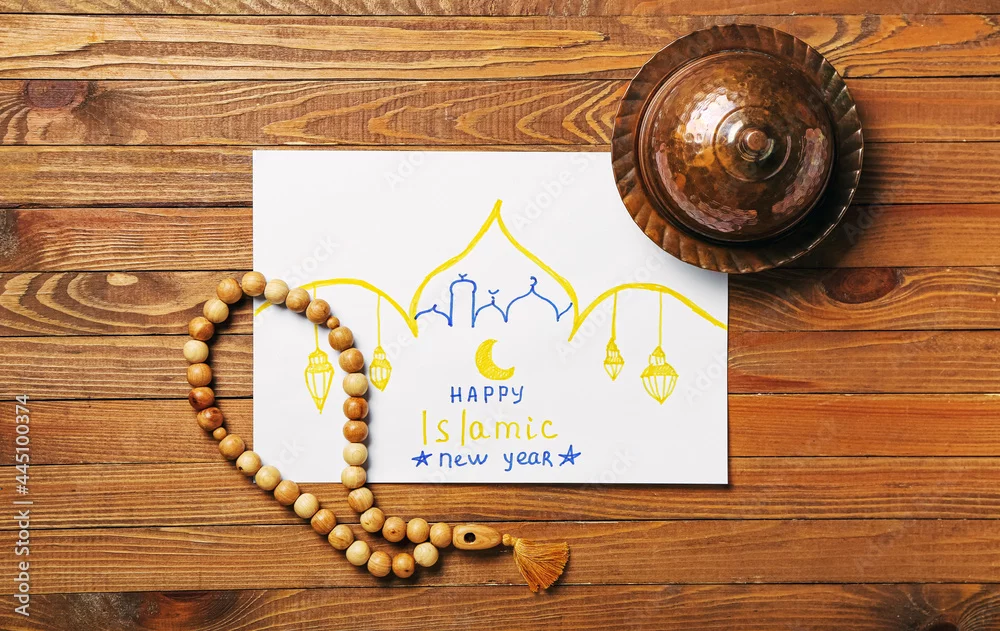 HAPPY
Islamic
new year
Adobe Stock | #445100374